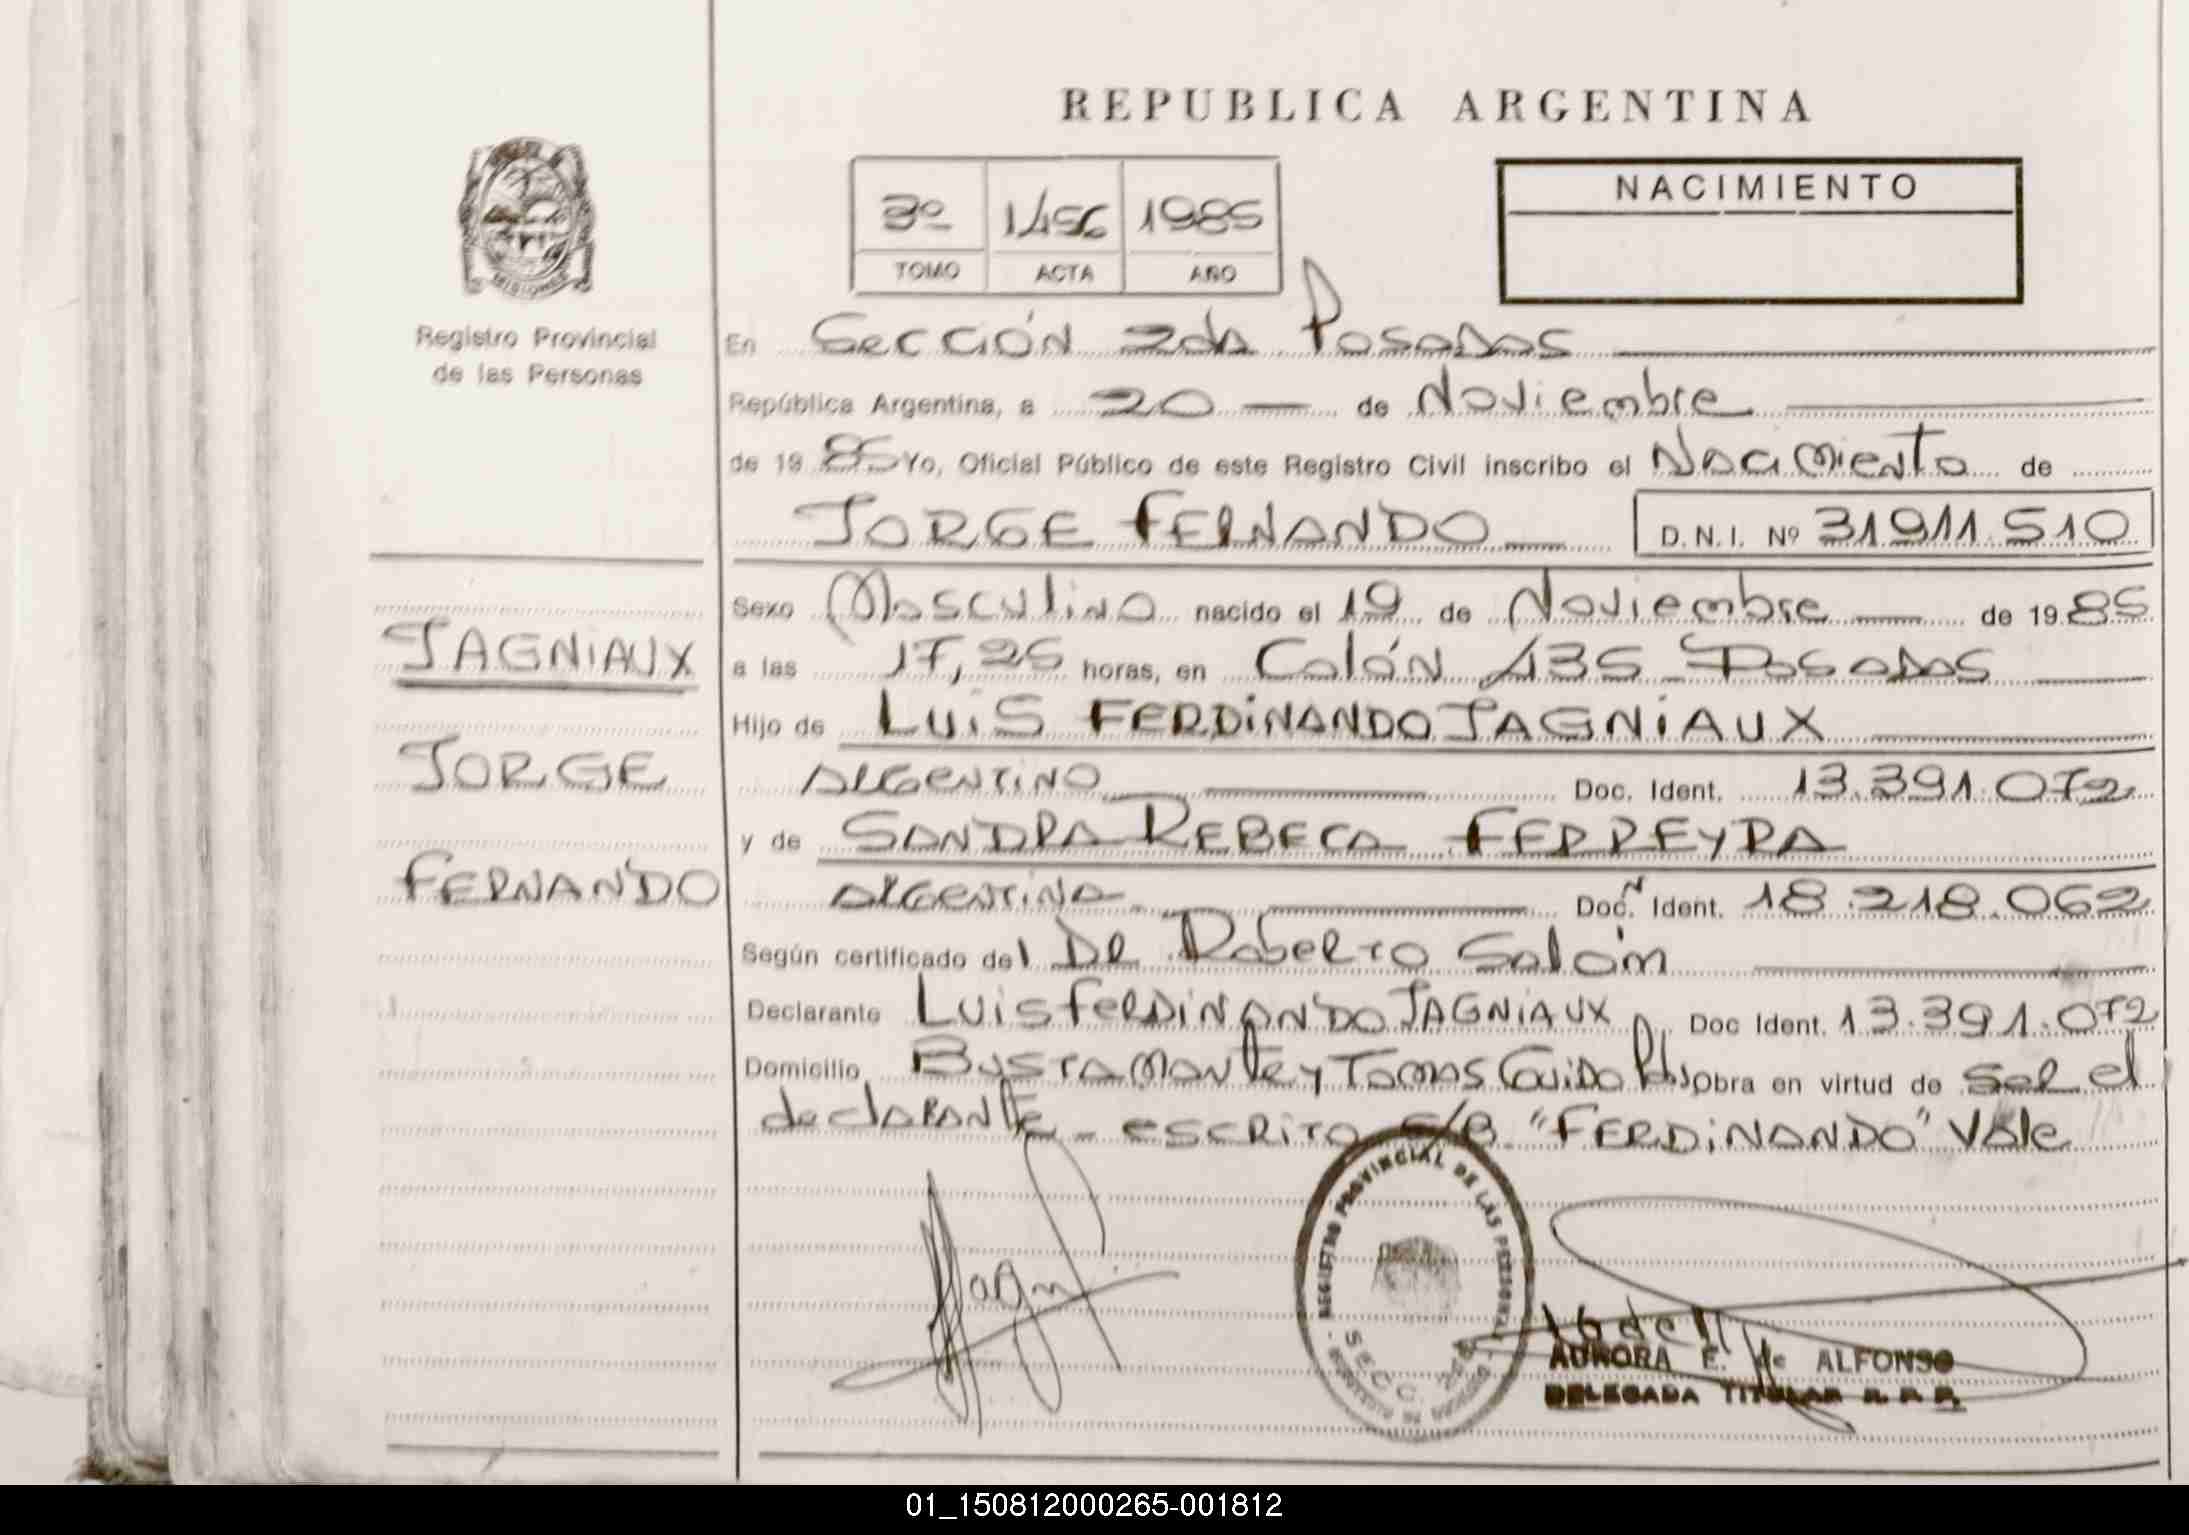 REPUBLICA ARGENTINA
3º 1456 1985
TOMO ACTA AÑO
NACIMIENTO
MISIONES
Registro Provincial
de las Personas
En Sección 2da Posadas
República Argentina, a 20 de Noviembre
de 1985 Yo, Oficial Público de este Registro Civil inscribo el Nacimiento de
JORGE FERNANDO D.N.I. Nº 31911.510
Sexo Masculino nacido el 19 de Noviembre de 1985
a las 17,25 horas, en Colón 435 Posadas
Hijo de LUiS FERDiNANDO JAGNiAUX
ARGENTINO Doc. Ident. 13.391.072
y de SANDRA REBECA FERREYRA
ARGENTINA Doc. Ident. 18.218.062
Según certificado del DR Roberto Salom
Declarante LUiS FERDiNANDO JAGNiAUX Doc Ident. 13.391.072
Domicilio Bustamante y Tomas Guido Pdas Obra en virtud de Ser el
declarante - escrito s/R "FERDiNANDO" Vale
JAGNiAUX
JORGE
FERNANDO
REGISTRO PROVINCIAL DE LAS PERSONAS
SECC. 2da
AURORA E. de ALFONSO
DELEGADA TITULAR R. P. P.
01_150812000265-001812